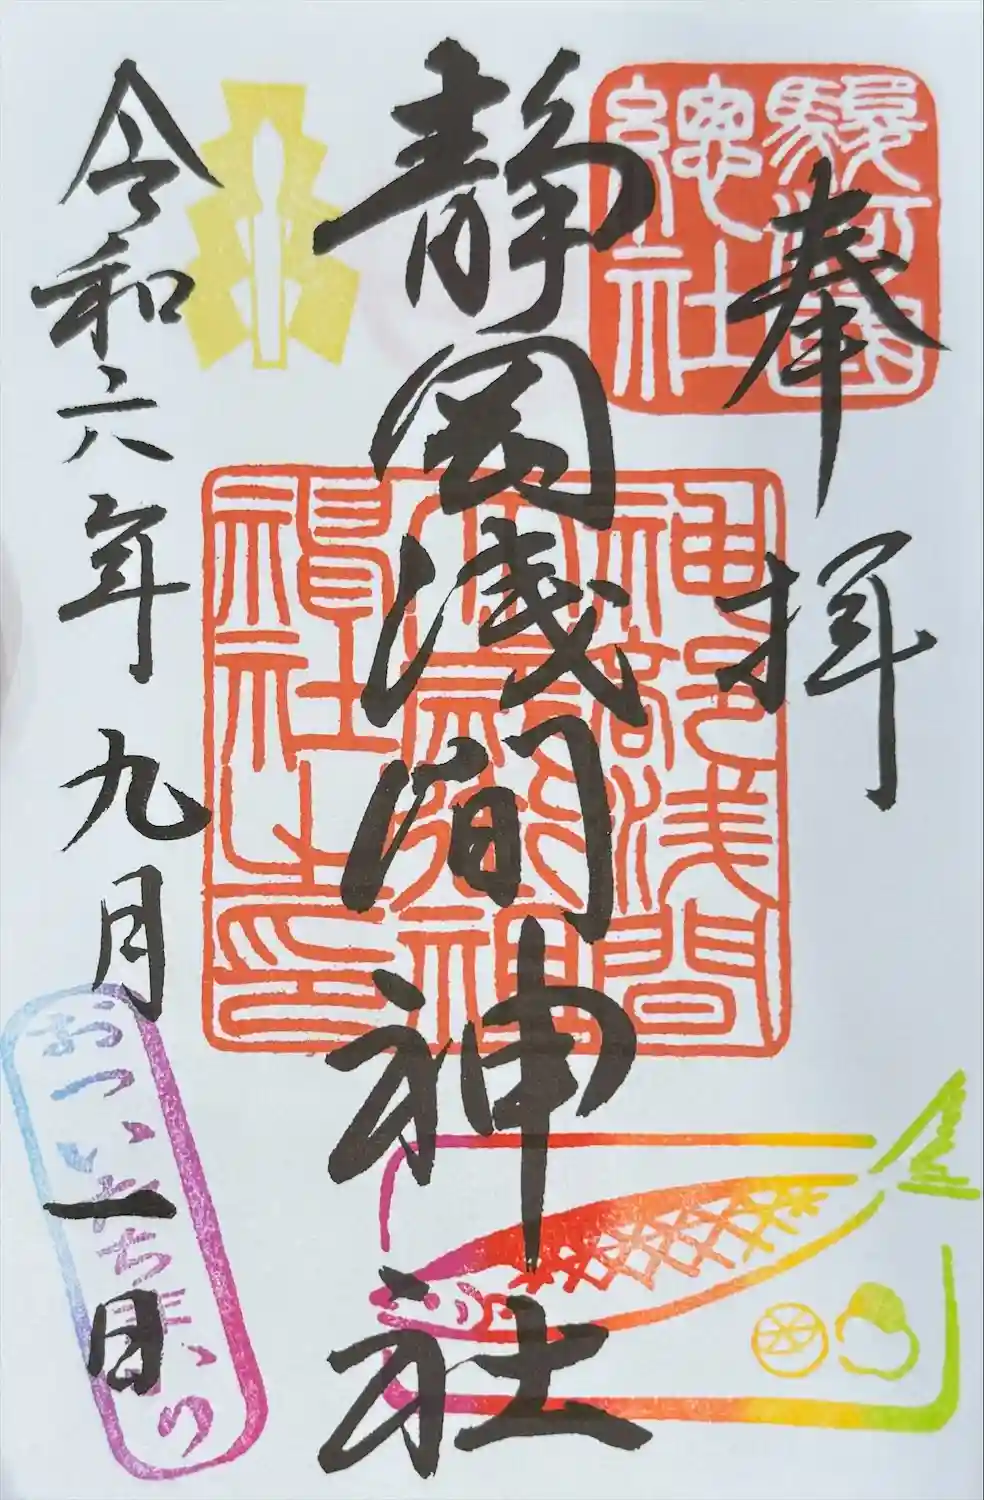 奉拝
駿河国
總社
静岡浅間神社
神部浅間
大歳御祖
神社之印
令和六年九月一日
おついたち参り